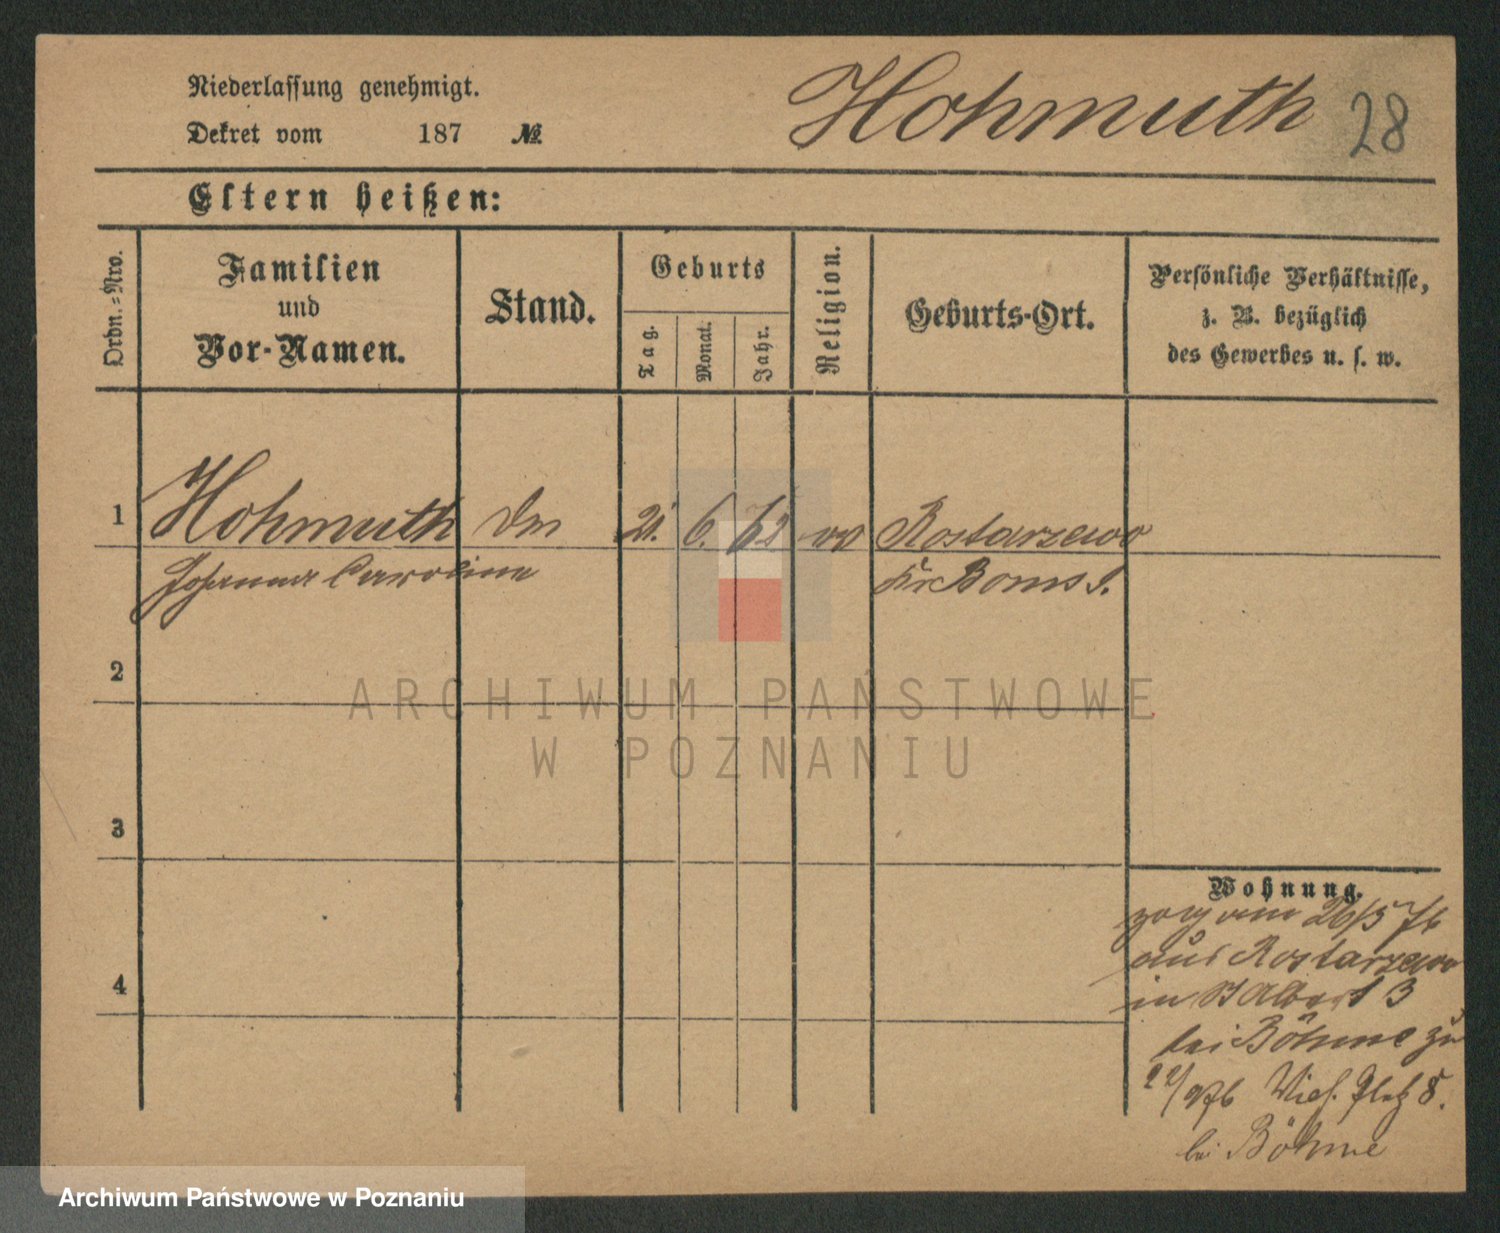 Niederlassung genehmigt.
Hohmuth 28
Dekret vom 187 №
Eltern heißen:
Ordn.=Nro.
Familien
und
Vor-Namen.
Stand.
Geburts
Tag.
Monat.
Jahr.
Religion.
Geburts-Ort.
Persönliche Verhältnisse,
z. B. bezüglich
des Gewerbes u. s. w.
1 Hohmuth 21. 6. 62 Rostarzewo
Johanna Caroline Kr Bomst.
2
3
4
Wohnung.
zog am 26/5 76
aus Rostarzewo
in St Adbert 3
bei Böhme zu
22/ 76 Wilh. Platz 8.
bei Böhme
ARCHIWUM PAŃSTWOWE
W POZNANIU
Archiwum Państwowe w Poznaniu